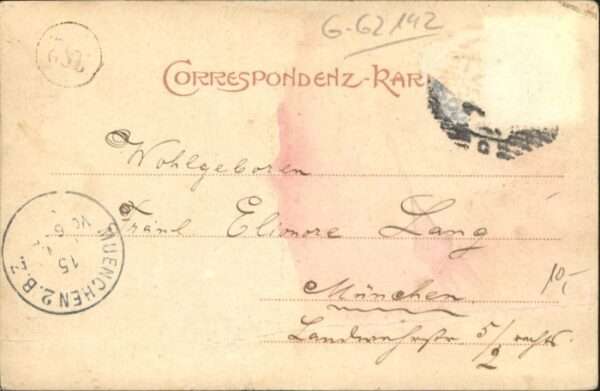 G-62142
CORRESPONDENZ-KAR
Wohlgeboren
Fräul Elionore Lang
10,-
München
Landwehrstr 5/2 rechts
MUENCHEN 2.B.Z.
15